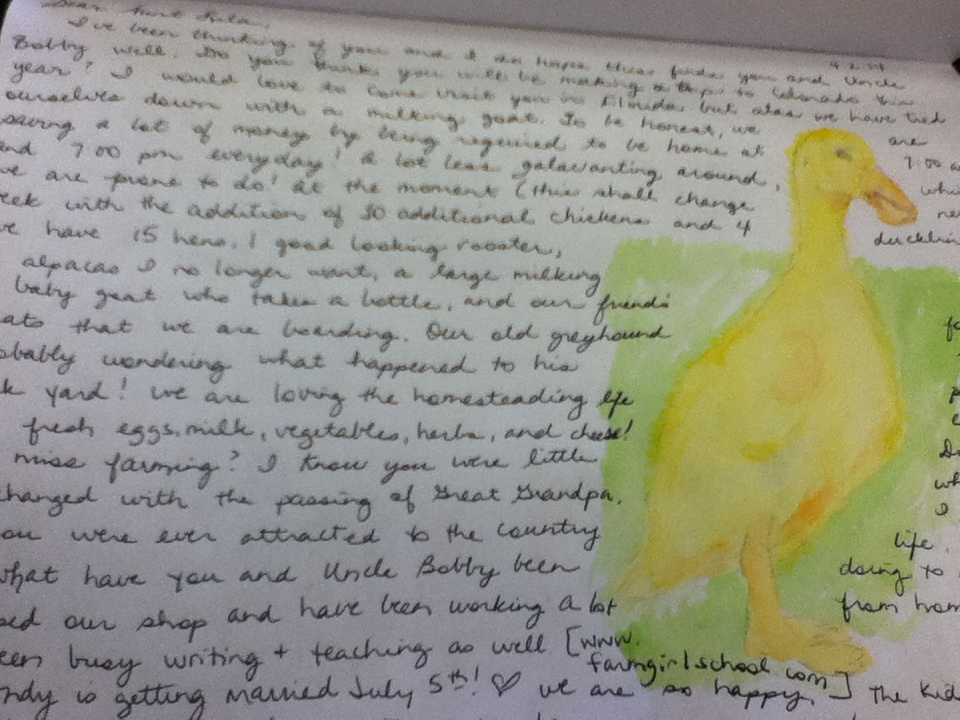 Dear Aunt
I've been thinking of you and I do hope this finds you and Uncle
Bobby well. Do you think you will be making a trip to Colorado this
year? I would love to come visit you in Florida but alas we have tied
ourselves down with a milking goat. To be honest, we are
saving a lot of money by being required to be home at 7:00 a
and 7:00 pm everyday! A lot less galavanting around, whi
we are prone to do! At the moment (this shall change ne
eek with the addition of 30 additional chickens and 4 ducklin
ve have 15 hens, 1 good looking rooster,
alpacas I no longer want, a large milking
baby goat who takes a bottle, and our friend's
ats that we are boarding. Our old greyhound
obably wondering what happened to his
k yard! We are loving the homesteading life
fresh eggs, milk, vegetables, herbs, and cheese!
miss farming? I know you were little
hanged with the passing of Great Grandpa.
ou were ever attracted to the country life.
what have you and Uncle Bobby been doing to
sed our shop and have been working a lot from hom
een busy writing + teaching as well [www.
farmgirlschool.com]
ndy is getting married July 5th! ♡ we are so happy. The kid